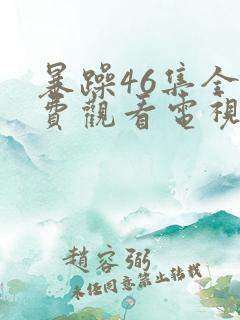 暴躁46集全
費觀看電視
趙容弼
未任同意禁止转载